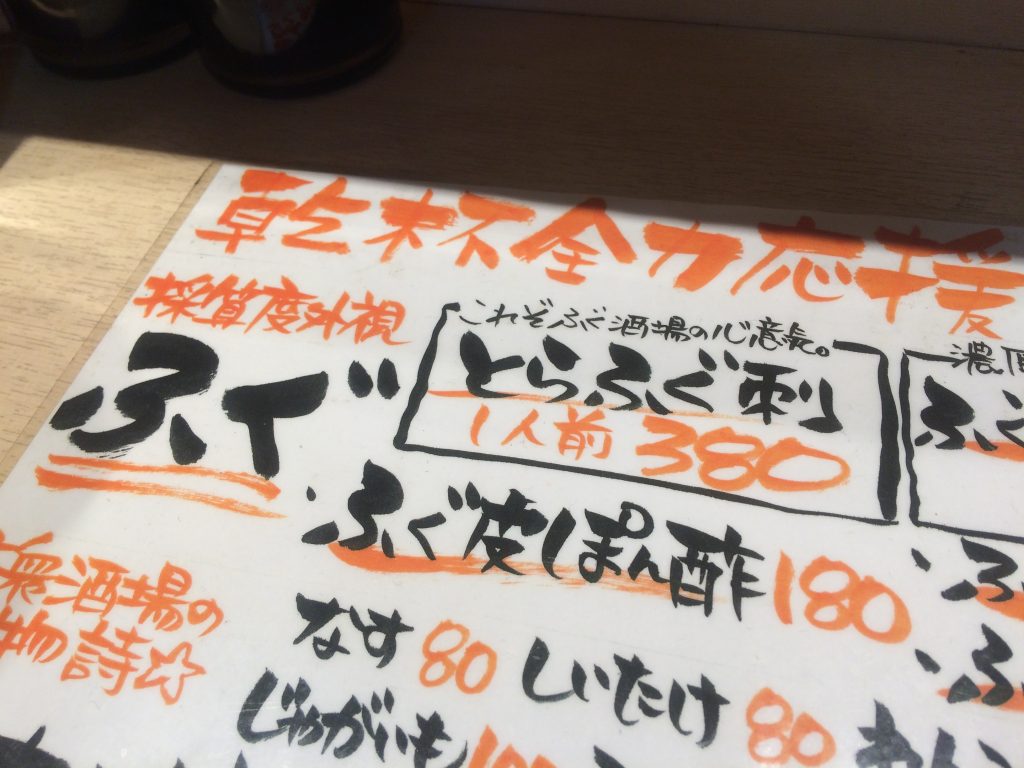 乾杯全力応援
採算度外視
ふぐ
これぞふぐ酒場の心意気。
とらふぐ刺
1人前 380
・ふぐ皮ぽん酢 180
酒場の
物詩☆
なす 80
しいたけ 80
じゃがいも
濃
ふぐ
・ふ
・ふ